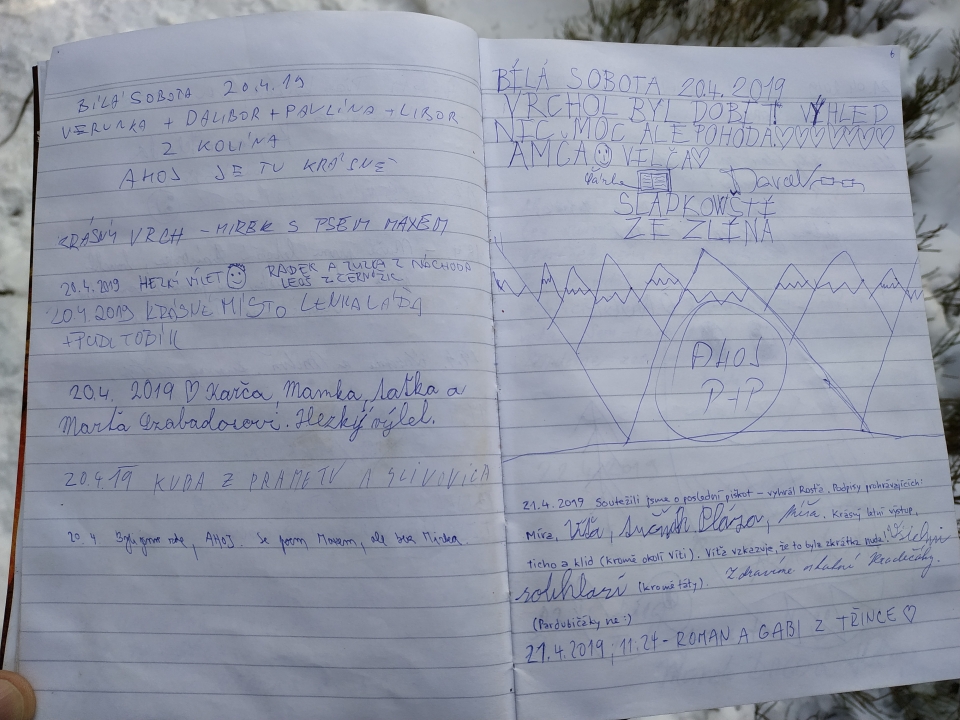 BÍLÁ SOBOTA 20.4.19
VERUNKA + DALIBOR + PAVLÍNA + LIBOR
Z KOLÍNA
AHOJ JE TU KRÁSNĚ
KRÁSNÝ VRCH – MIREK S PSEM MAXEM
20.4.2019 HEZKÍ VÍLET RADEK A ZUZKA Z NÁCHODA
LEOŠ Z ČERNOŽIC
20.4 2019 KRÁSNÉ MÍSTO LENKA LÁĎA
+PUDL TOBÍK
20.4. 2019 ♡ Karča, Mamka, Taťka a
Marta Szabadosovi. Hezký výlet.
20.4.19 KUBA Z PRAMETU A SLIVOVICA
20.4 AHOJ. Se psem Maxem, ale bez Mirka.
6
BÍLÁ SOBOTA 20.4.2019
VRCHOL BYL DOBIT VÝHLED
NIC MOC ALE POHODA♡♡♡♡♡♡♡
AMČA VELČA♡
SLÁDKOVŠTÍ
ZE ZLÍNA
AHOJ
P+P
21.4.2019 Soutěžili jsme o poslední piškot – vyhrál Rosťa. Podpisy prohrávajících:
Míra, Víťa, Míša. Krásný letní výstup,
ticho a klid (kromě okolí Víti). Víťa vzkazuje, že to byla zkrátka nuda! Všichni
souhlasí (kromě táty). Zdravíme Hradečáky.
(Pardubičáky ne :)
21.4.2019, 11:27 - ROMAN A GABI Z TŘINCE ♡